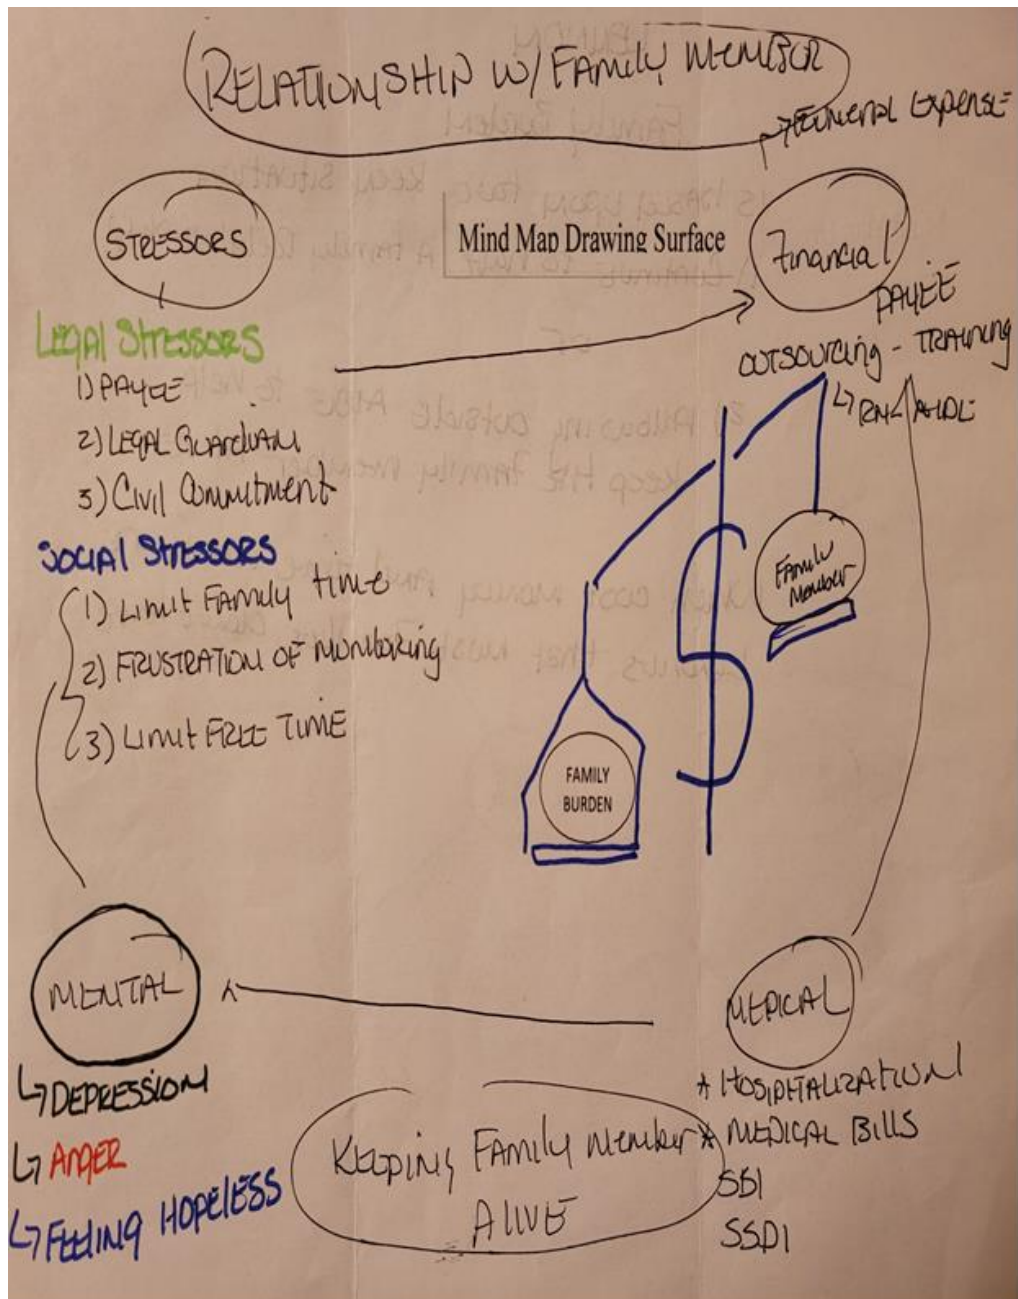 RELATIONSHIP W/ FAMILY MEMBER
Funeral Expense
STRESSORS
Mind Map Drawing Surface
Financial
PAYEE
OUTSOURCING - TRAINING
LEGAL STRESSORS
1) PAYEE
2) LEGAL GUARDIAN
3) CIVIL Commitment
SOCIAL STRESSORS
1) Limit Family time
2) FRUSTRATION OF MONITORING
3) Limit FREE TIME
Family
Member
FAMILY
BURDEN
MENTAL
MEDICAL
DEPRESSION
ANGER
FEELING HOPELESS
* HOSPITALIZATION
* MEDICAL BILLS
SSI
SSDI
KEEPING Family member
ALIVE